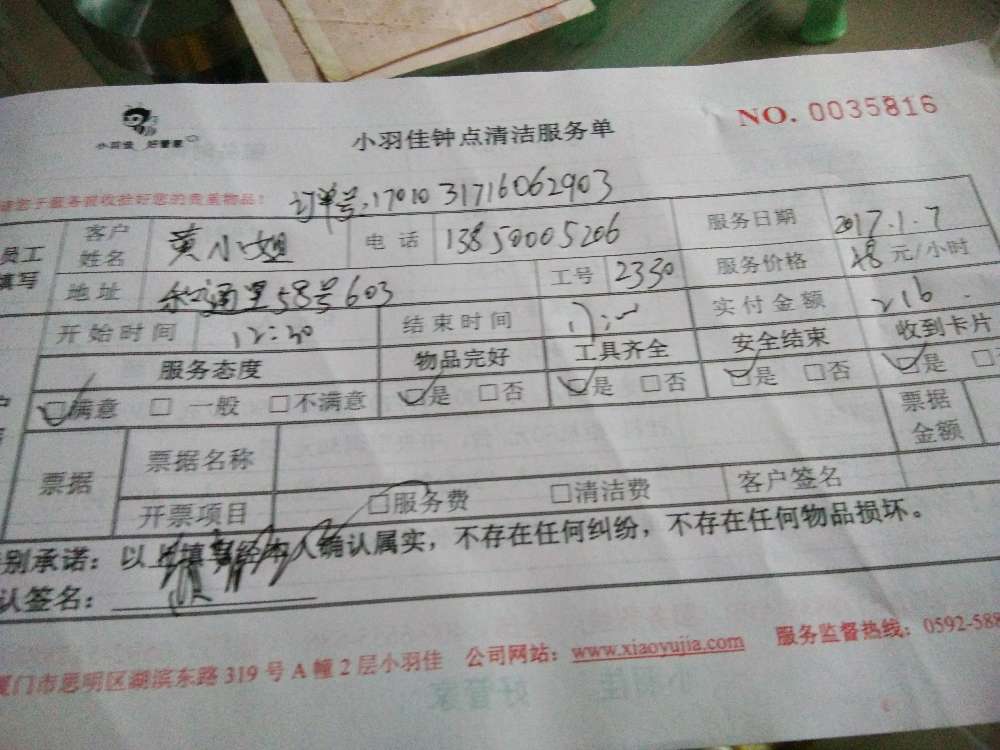 小羽佳 好管家
小羽佳钟点清洁服务单
NO. 0035816
请您于服务前收捡好您的贵重物品!
订单号:1701031716062903
员工填写 客户姓名 黄小姐 电话 13850005206 服务日期 2017.1.7
地址 58号603 工号 2330 服务价格 48 元/小时
开始时间 12:30 结束时间 17:00 实付金额 216
服务态度 物品完好 工具齐全 安全结束 收到卡片
☑满意 □ 一般 □不满意 ☑是 □否 ☑是 □否 ☑是 □否 ☑是
票据 票据名称 票据金额
开票项目 □服务费 □清洁费 客户签名
别承诺:以上填写经本人确认属实,不存在任何纠纷,不存在任何物品损坏。
认签名:
厦门市思明区湖滨东路319号A幢2层小羽佳 公司网站:www.xiaoyujia.com 服务监督热线:0592-588